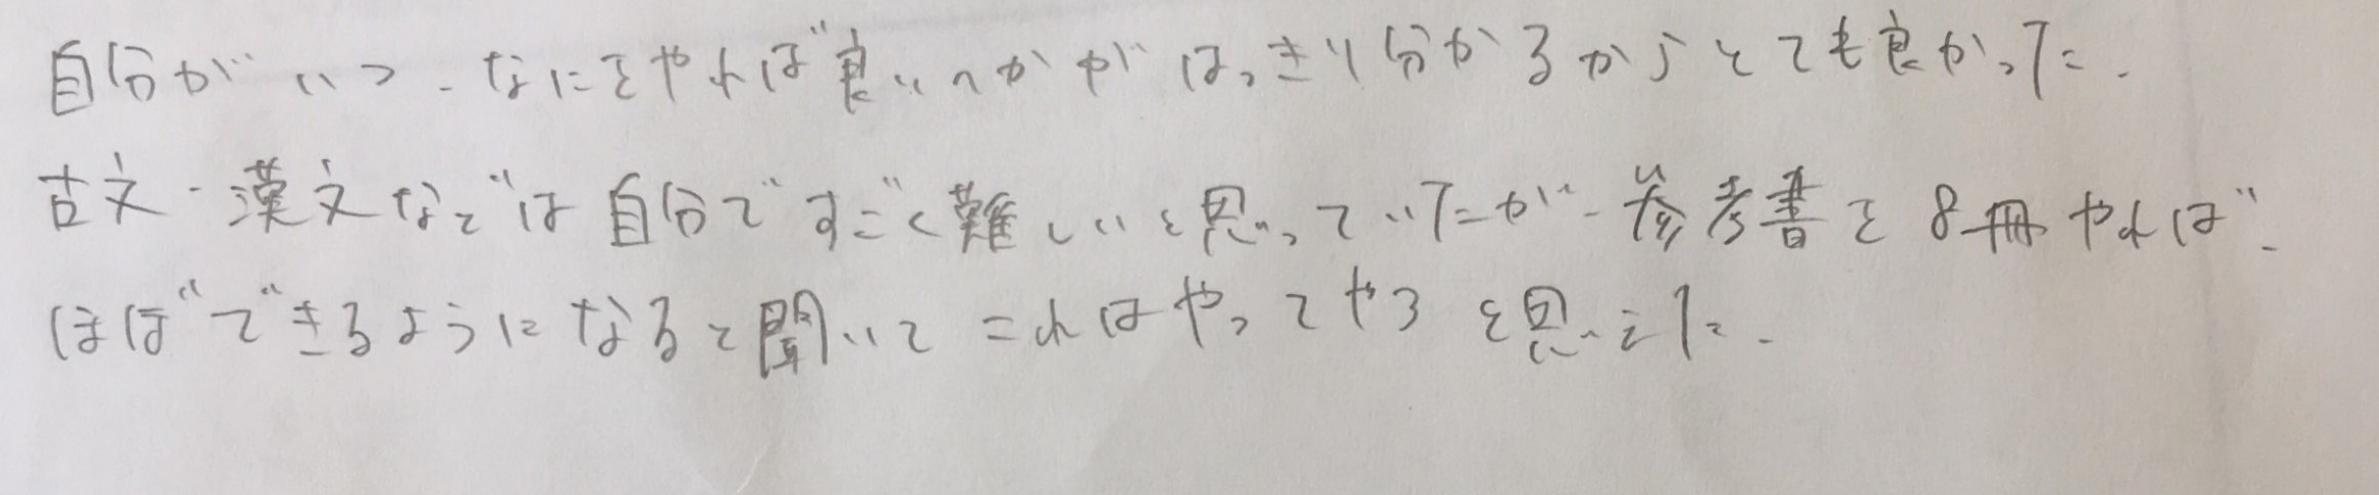 自分がいつ、なにをやれば良いのかがはっきり分かるからとても良かった。
古文・漢文などは自分ですごく難しいと思っていたが、参考書を8冊やれば、
ほぼできるようになると聞いてこれはやってやろと思えた。